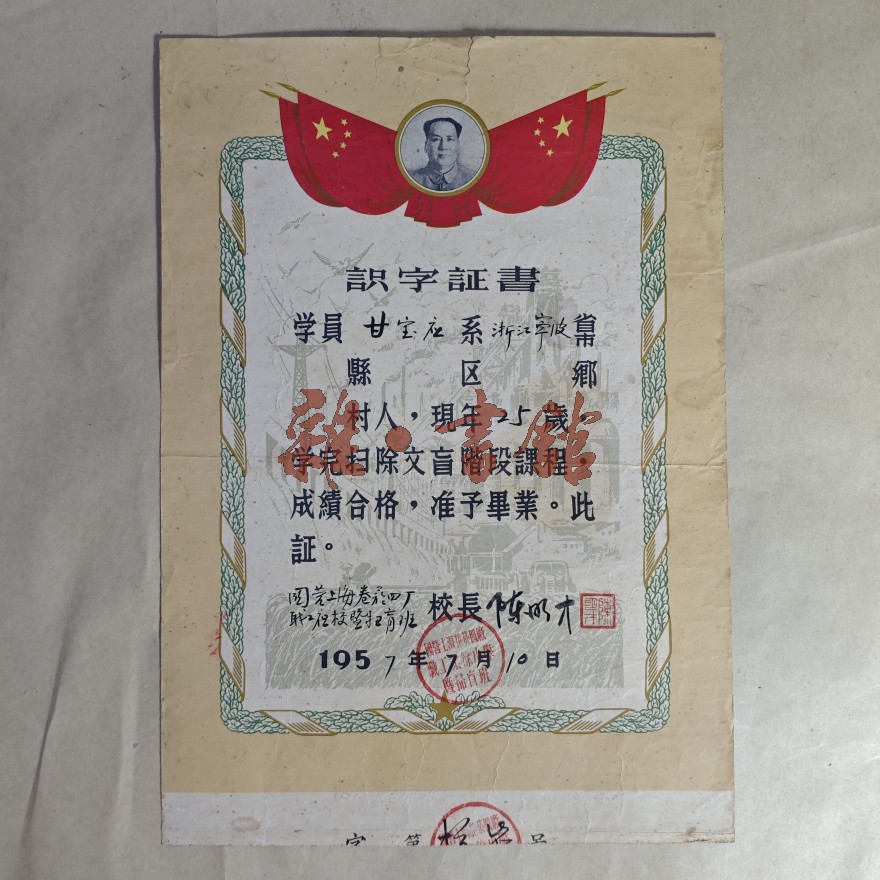 識字証書
学員 甘宝应 系 浙江寧波 省市
縣 区 鄉
村人，現年25歲，
学完扫除文盲階段課程，
成績合格，准予畢業。此
証。
国营上海卷烟四厂
职工业校暨扫盲班 校長 陈明才
1957年7月10日
字 第 号
雜·書館